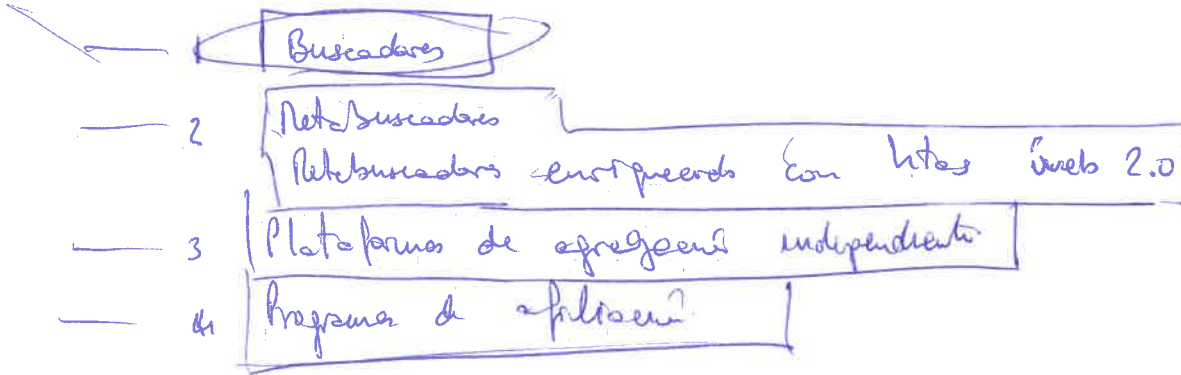 1 Buscadores
2 Metabuscadores
Metabuscadores enriquecidos con htas web 2.0
3 Plataformas de agregación independiente
4 Programas de afiliación